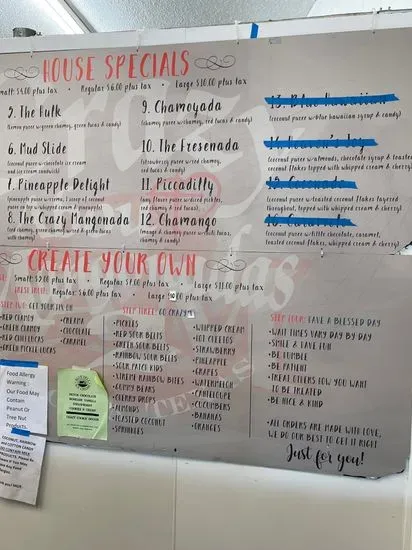 HOUSE SPECIALS
Small: $4.00 plus tax • Regular $6.00 plus tax • Large $10.00 plus tax
5. The Hulk
6. Mud Slide
(coconut puree w-chocolate ice cream
and ice cream sandwich)
7. Pineapple Delight
8. The Crazy Mangonada
with chamoy)
9. Chamoyada
(chamoy puree w-chamoy, red lucas & candy)
10. The Fresenada
(strawberry puree w-red chamoy,
red lucas & candy)
11. Piccadilly
(any flavor puree w-dried pickles,
red chamoy & red lucas)
12. Chamango
(mango & chamoy puree w-red lucas,
chamoy & candy)
13. Blue Hawaiian
(coconut puree w-blue hawaiian syrup & candy)
14. Heaven's Joy
(coconut puree w-almonds, chocolate syrup & toasted
coconut flakes topped with whipped cream & cherry)
15. Coconada
(coconut puree w-toasted coconut flakes layered
throughout, topped with whipped cream & cherry)
16. Caramelo
toasted coconut flakes, whipped cream & cherry)
CREATE YOUR OWN
Small: $2.00 plus tax • Regular $4.00 plus tax • Large $11.00 plus tax
FRESH FRUIT: Regular: $6.00 plus tax • Large 10.00 plus tax
STEP TWO: GET YOUR FIX ON
•RED CLAMOY
•RED CHAMOY
•RED CHILI LUCAS
•GREEN PICKLE LUCAS
•CREAMA
•CHOCOLATE
•CARAMEL
STEP THREE: GO CRAZY
•PICKLES
•RED SOUR BELTS
•GREEN SOUR BELTS
•RAINBOW SOUR BELTS
•SOUR PATCH KIDS
•XTREME RAINBOW BELTS
•GUMMY BEARS
•CHERRY DROPS
•ALMONDS
•TOASTED COCONUT
•SPRINKLES
•WHIPPED CREAM
•HOT CHEETOS
•STRAWBERRY
•PINEAPPLE
•GRAPES
•WATERMELON
•CANTELOUPE
•CUCUMBERS
•BANANAS
•ORANGES
STEP FOUR: HAVE A BLESSED DAY
•WAIT TIMES VARY DAY BY DAY
•SMILE & HAVE FUN
•BE HUMBLE
•BE PATIENT
•TREAT OTHERS HOW YOU WANT
TO BE TREATED
•BE NICE & KIND
•ALL ORDERS ARE MADE WITH LOVE,
WE DO OUR BEST TO GET IT RIGHT
Just for you!
Food Allergy
Warning :
Our Food May
Contain
Peanut Or
Tree Nut
Products.
COCONUT, RAINBOW
and COTTON CANDY